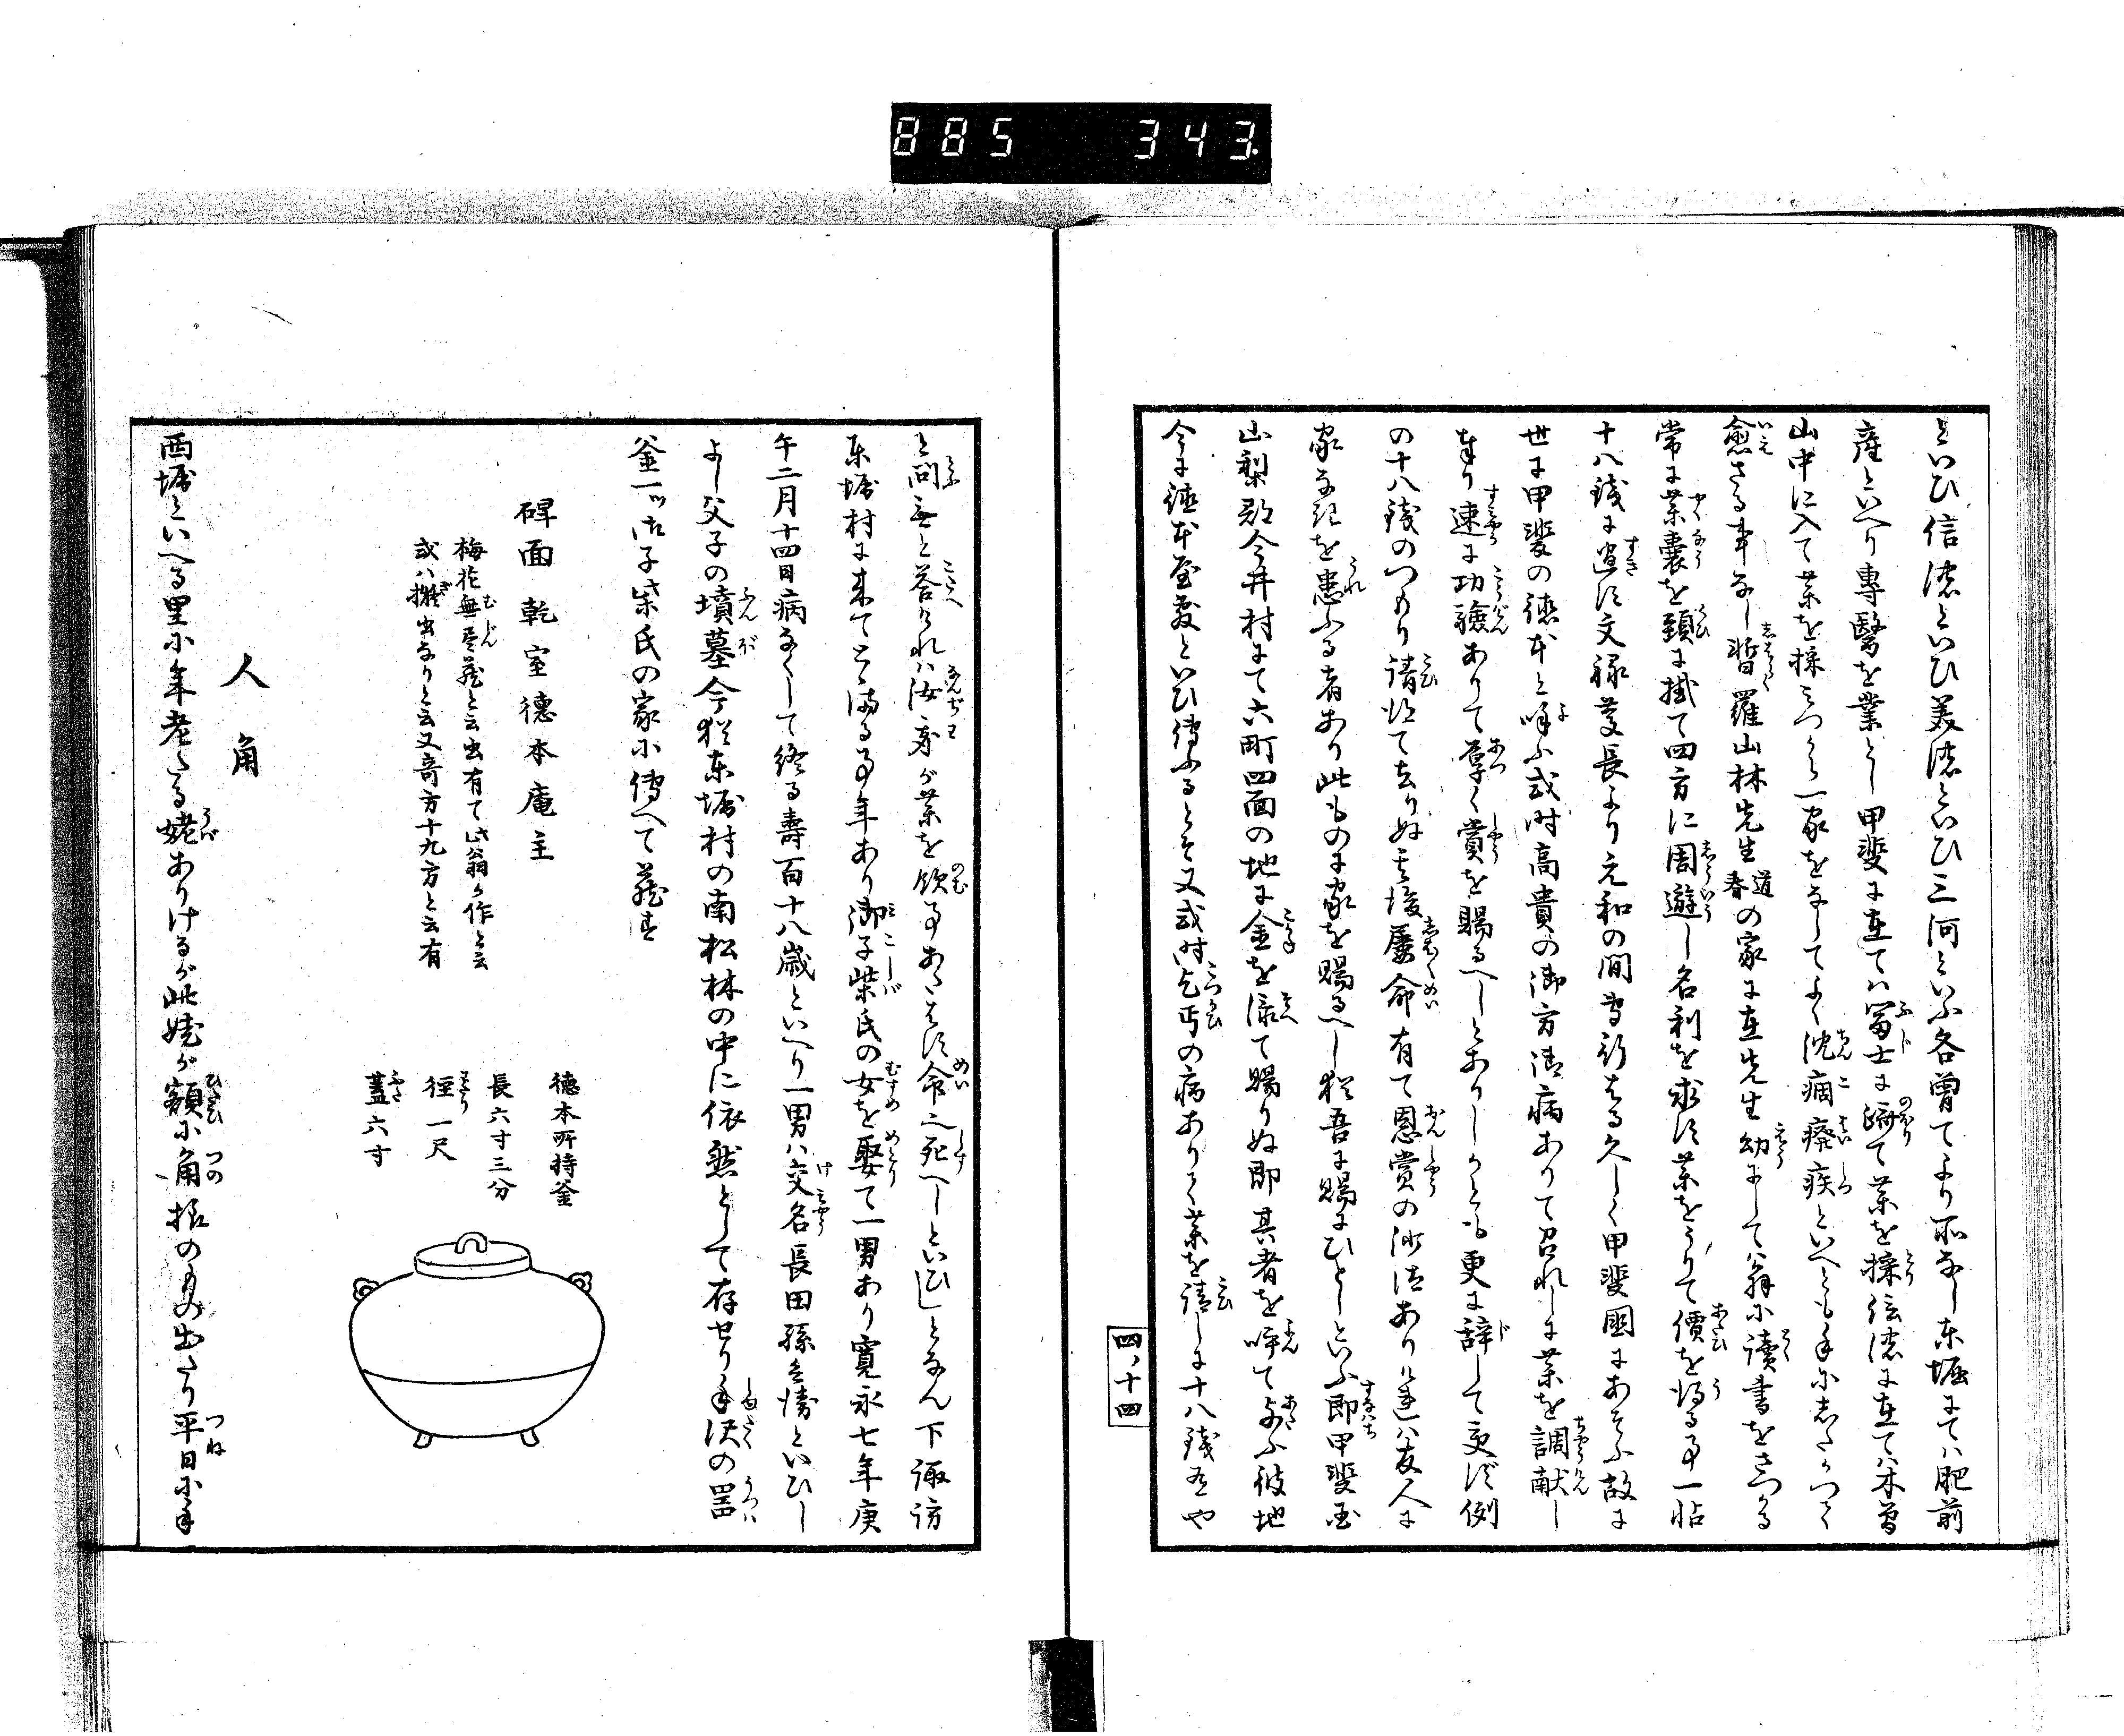 885 343
といひ信濃といひ美濃といひ三河といふ各曽てより所なし東堀にてハ肥前
産といへり専醫を業とし甲斐に在てハ冨士に躋て薬を採信濃に在てハ木曽
山中に入て薬を採みつから一家をなしてよく沈痼癈疾といへとも手にしたかつて
愈さる事なし暫羅山林先生道春の家に在先生幼にして翁に讀書をさつかる
常に薬嚢を頚に掛て四方に周遊し名利を求す薬をうりて價を得る事一帖
十八銭に過す文禄慶長より元和の間専行はる久しく甲斐國にあそふ故に
世に甲斐の徳本と呼ふ或时高貴の御方御病ありて召れしに薬を調献し
奉り速に功驗ありて厚く賞を賜るへしとありしかとも更に辞して受す例
の十八銭のつもり請得て去りぬ其後屡命有て恩賞の沙汰ありけれハ友人に
家なきを患ふる者あり此ものに家を賜るへし猶吾に賜にひとしといふ即甲斐国
山梨郡今井村にて六町四面の地に金を添て賜りぬ即其者を呼て与ふ彼地
今に徳本屋敷といひ傳ふるとそ又或时乞丐の病ありて薬を請しに十八銭有や
四ノ十四
と問無と答けれハ汝我が薬を飲事あたはす命之死へしといひしとなん下諏訪
東堀村に来てとゝまる事年あり御子柴氏の女を娶て一男あり寛永七年庚
午二月十四日病なくして終る壽百十八歳といへり一男ハ交名長田孫兵衛といひし
よし父子の墳墓今猶東堀村の南松林の中に依然として存せり手沢の噐
釜一ツ御子柴氏の家に傳へて蔵す
碑面 乾室德本庵主
梅花無尽蔵と云出有て此翁の作と云
或ハ擬出なりと云又竒方十九方と云有
德本所持釜
長六寸三分
径一尺
蓋六寸
人角
西堀といへる里に年老たる姥ありけるが此姥が額に角様のもの出たり平日に手